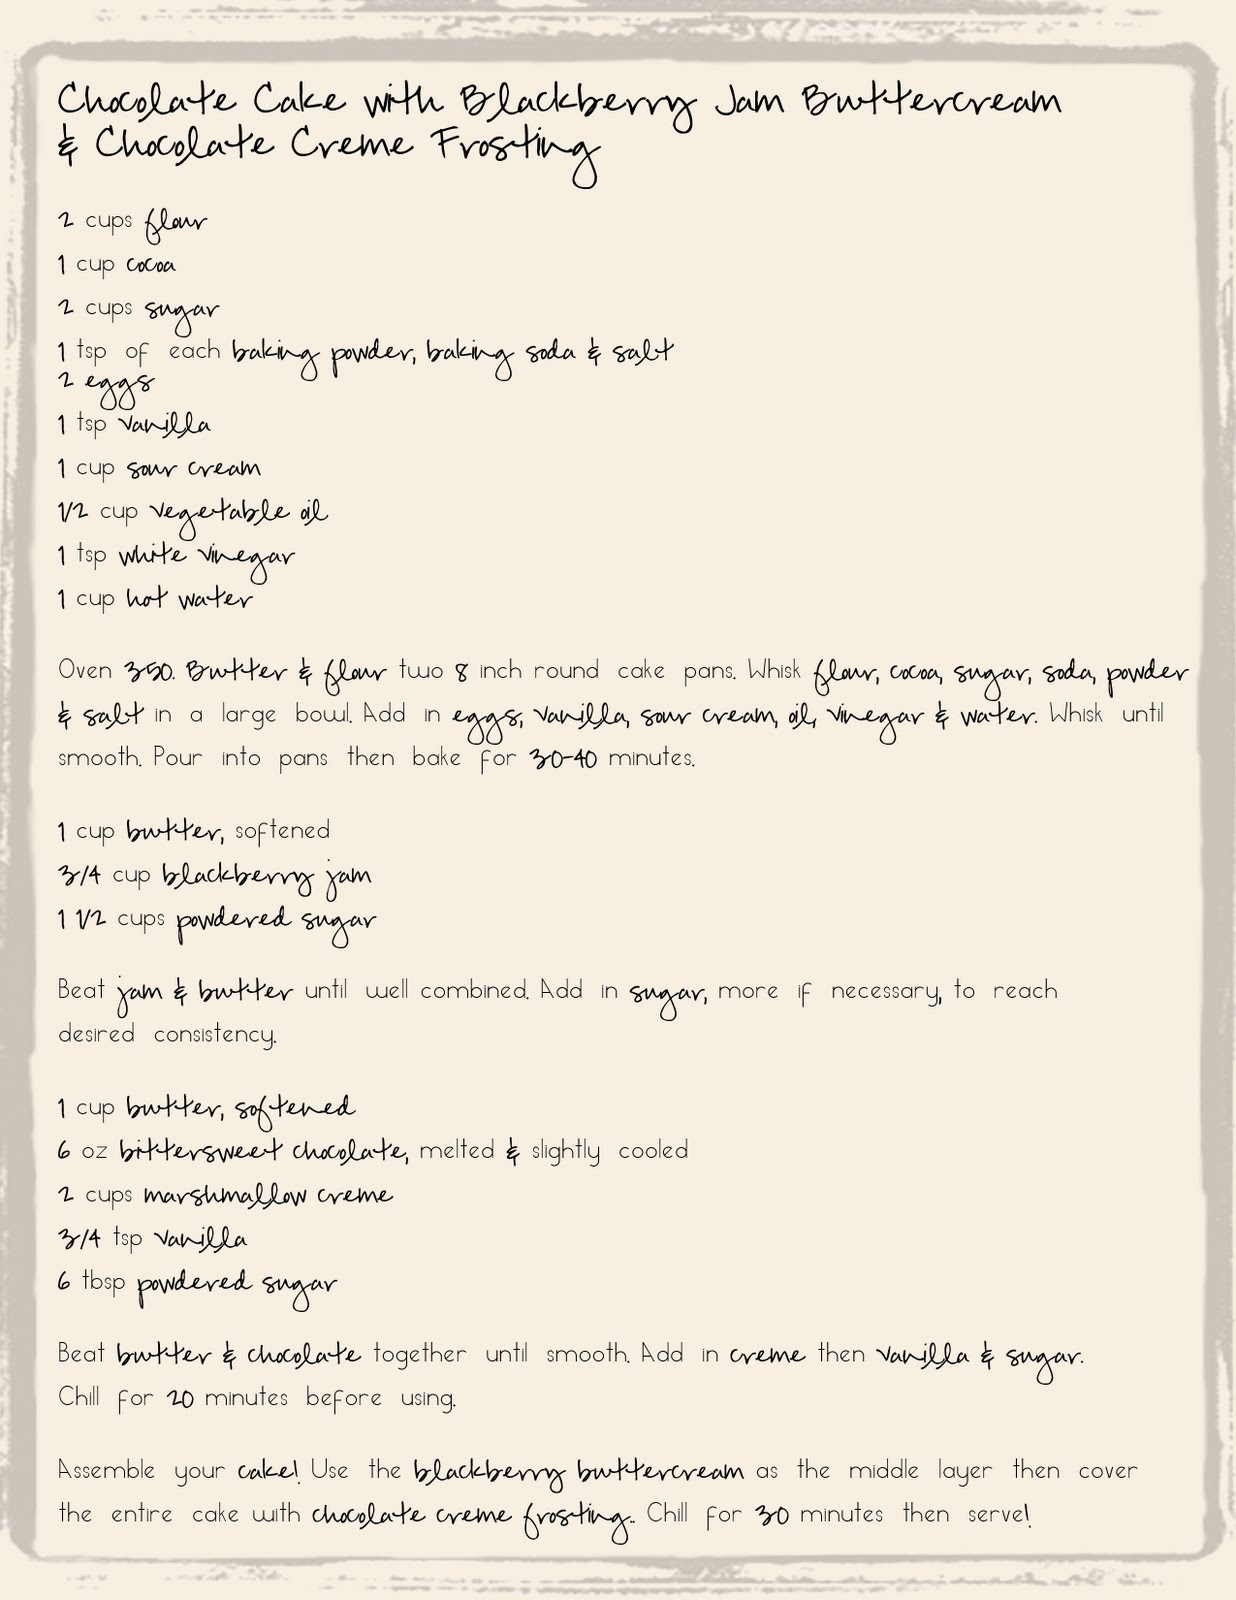 Chocolate Cake with Blackberry Jam Buttercream
& Chocolate Creme Frosting
2 cups flour
1 cup cocoa
2 cups sugar
1 tsp of each baking powder, baking soda & salt
2 eggs
1 tsp vanilla
1 cup sour cream
1/2 cup vegetable oil
1 tsp white vinegar
1 cup hot water
Oven 350. Butter & flour two 8 inch round cake pans. Whisk flour, cocoa, sugar, soda, powder
& salt in a large bowl. Add in eggs, vanilla, sour cream, oil, vinegar & water. Whisk until
smooth. Pour into pans then bake for 30-40 minutes.
1 cup butter, softened
3/4 cup blackberry jam
1 1/2 cups powdered sugar
Beat jam & butter until well combined. Add in sugar, more if necessary, to reach
desired consistency.
1 cup butter, softened
6 oz bittersweet chocolate, melted & slightly cooled
2 cups marshmallow creme
3/4 tsp vanilla
6 tbsp powdered sugar
Beat butter & chocolate together until smooth. Add in creme then vanilla & sugar.
Chill for 20 minutes before using.
Assemble your cake! Use the blackberry buttercream as the middle layer then cover
the entire cake with chocolate creme frosting.. Chill for 30 minutes then serve!